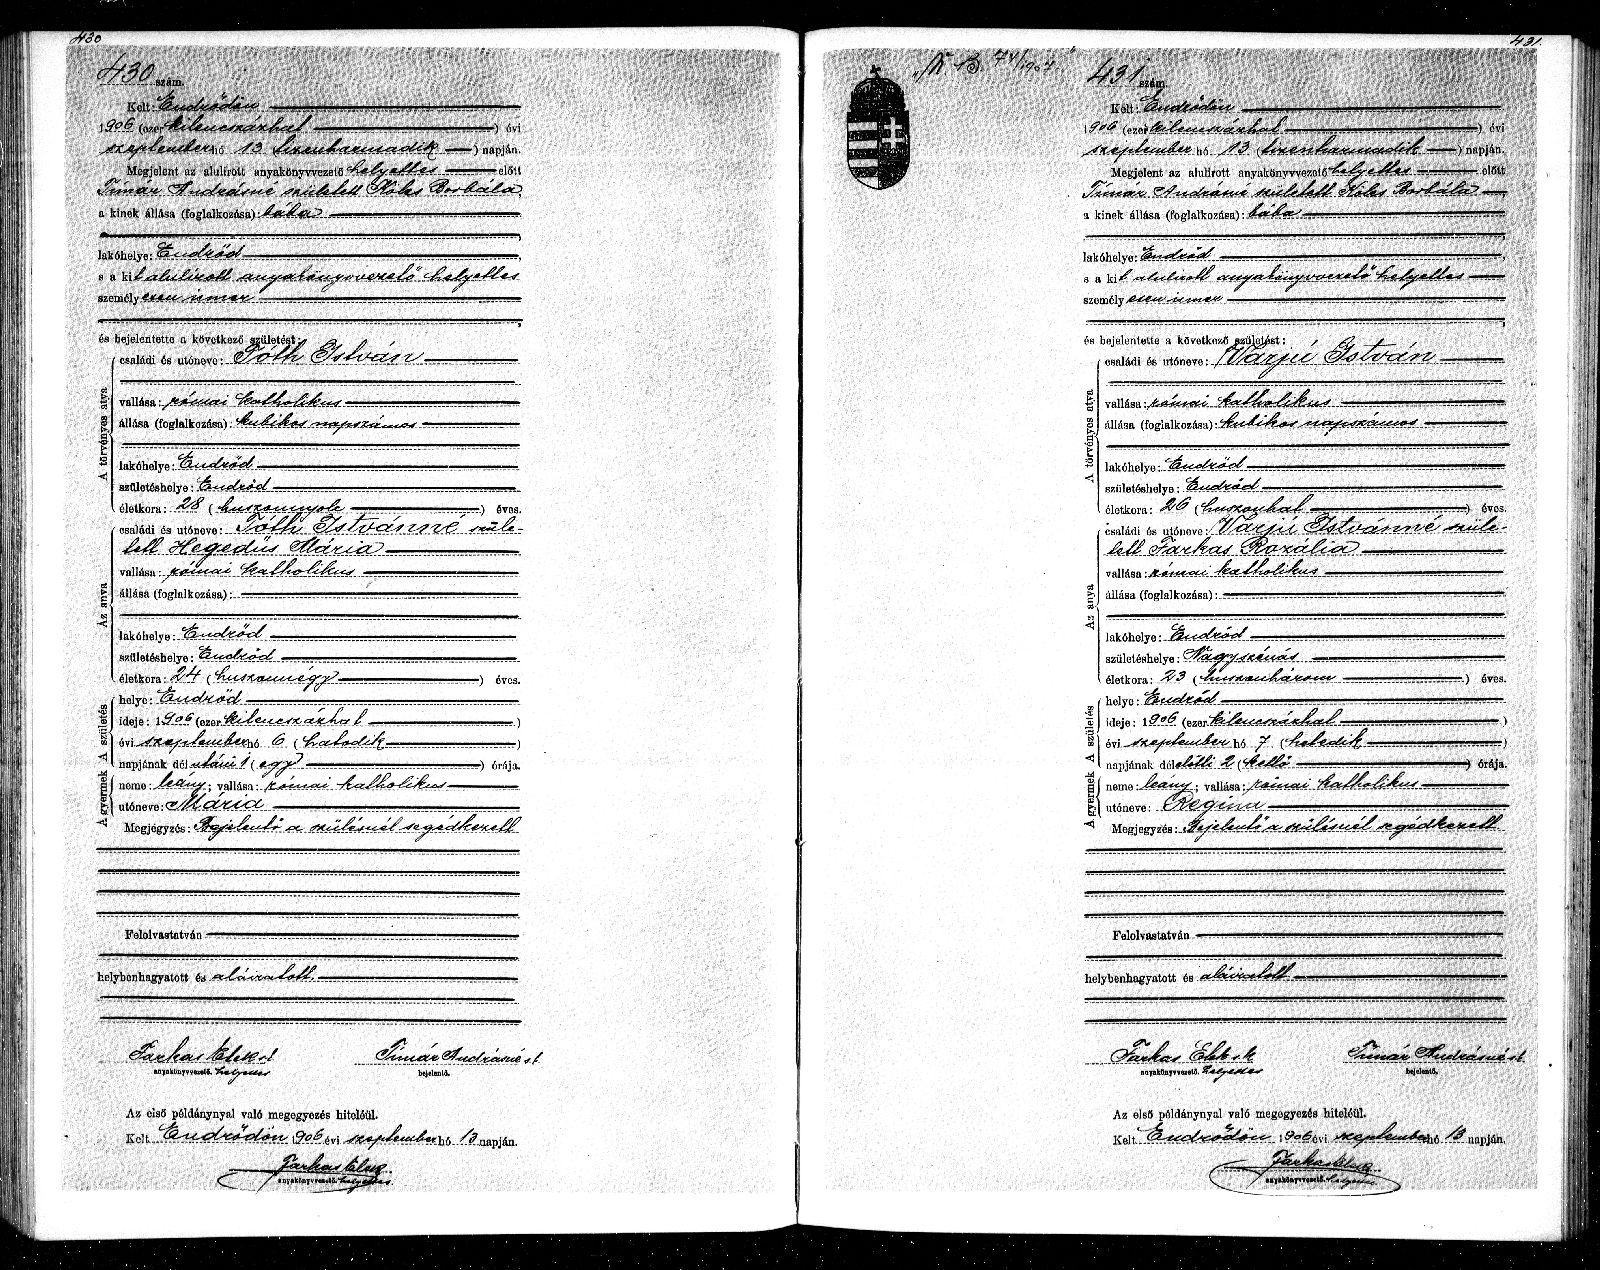 430
430 szám.
Kelt: Endrődön
1906 (ezer kilencszázhat) évi
szeptember hó 13 (tizenharmadik) napján.
Megjelent az alulirott anyakönyvvezető helyettes előtt
Timár Andrásné született Kóles Borbála,
a kinek állása (foglalkozása): bába
lakóhelye: Endrőd,
s a kit alulirott anyakönyvvezető helyettes
személyesen ismer,
és bejelentette a következő születést:
A törvényes atya
családi és utóneve: Tóth István
vallása: római katholikus
állása (foglalkozása): kubikos napszámos
lakóhelye: Endrőd
születéshelye: Endrőd
életkora: 28 (huszonnyolc) éves.
Az anya
családi és utóneve: Tóth Istvánné szüle-
tett Hegedüs Mária
vallása: római katholikus
állása (foglalkozása):
lakóhelye: Endrőd
születéshelye: Endrőd
életkora: 24 (huszonnégy) éves.
A születés
helye: Endrőd
ideje: 1906 (ezer kilencszázhat)
évi szeptember hó 6 (hatodik)
napjának délutáni 1 (egy) órája.
A gyermek
neme: leány; vallása: római katholikus
utóneve: Mária
Megjegyzés: Bejelentő a szülésnél segédkezett
Felolvastatván
helybenhagyatott és aláiratott
Farkas Elek st
anyakönyvvezető. helyettes
Timár Andrásné st
bejelentő.
Az első példánynyal való megegyezés hiteléül.
Kelt Endrődön 1906 évi szeptember hó 13 napján.
Farkas Elek
anyakönyvvezető. helyettes
431.
431 szám.
Kelt: Endrődön
1906 (ezer kilencszázhat) évi
szeptember hó 13 (tizenharmadik) napján.
Megjelent az alulirott anyakönyvvezető helyettes előtt
Timár Andrásné született Kóles Borbála,
a kinek állása (foglalkozása): bába
lakóhelye: Endrőd,
s a kit alulirott anyakönyvvezető helyettes
személyesen ismer,
és bejelentette a következő születést:
A törvényes atya
családi és utóneve: Varjú István
vallása: római katholikus
állása (foglalkozása): kubikos napszámos
lakóhelye: Endrőd
születéshelye: Endrőd
életkora: 26 (huszonhat) éves.
Az anya
családi és utóneve: Varjú Istvánné szüle-
tett Farkas Rozália
vallása: római katholikus
állása (foglalkozása):
lakóhelye: Endrőd
születéshelye: Nagyszénás
életkora: 23 (huszonhárom) éves.
A születés
helye: Endrőd
ideje: 1906 (ezer kilencszázhat)
évi szeptember hó 7 (hetedik)
napjának délelőtti 2 (kettő) órája.
A gyermek
neme: leány; vallása: római katholikus
utóneve: Regina
Megjegyzés: Bejelentő a szülésnél segédkezett
Felolvastatván
helybenhagyatott és aláiratott
Farkas Elek sk
anyakönyvvezető. helyettes
Timár Andrásné st
bejelentő.
Az első példánynyal való megegyezés hiteléül.
Kelt Endrődön 1906 évi szeptember hó 13 napján.
Farkas Elek
anyakönyvvezető. helyettes